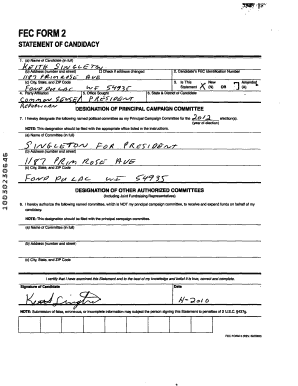 FEC FORM 2
STATEMENT OF CANDIDACY
1. (a) Name of Candidate (in full)
KEITH SINGLETON
(b) Address (number and street) Check if address changed 2. Candidate's FEC Identification Number
1187 PRIMROSE AVE
(c) City, State, and ZIP Code 3. Is This Statement New (N) OR Amended (A)
FOND DU LAC WI 54935
4. Party Affiliation 5. Office Sought 6. State & District of Candidate
COMMON SENSE PRESIDENT
REPUBLICAN
DESIGNATION OF PRINCIPAL CAMPAIGN COMMITTEE
7. I hereby designate the following named political committee as my Principal Campaign Committee for the 2012 election(s).
(year of election)
NOTE: This designation should be filed with the appropriate office listed in the instructions.
(a) Name of Committee (in full)
SINGLETON FOR PRESIDENT
(b) Address (number and street)
1187 PRIMROSE AVE
(c) City, State, and ZIP Code
FOND DU LAC WI 54935
DESIGNATION OF OTHER AUTHORIZED COMMITTEES
(Including Joint Fundraising Representatives)
8. I hereby authorize the following named committee, which is NOT my principal campaign committee, to receive and expend funds on behalf of my candidacy.
NOTE: This designation should be filed with the principal campaign committee.
(a) Name of Committee (in full)
(b) Address (number and street)
(c) City, State, and ZIP Code
I certify that I have examined this Statement and to the best of my knowledge and belief it is true, correct and complete.
Signature of Candidate Date
NOTE: Submission of false, erroneous, or incomplete information may subject the person signing this Statement to penalties of 2 U.S.C. §437g.
10030230646